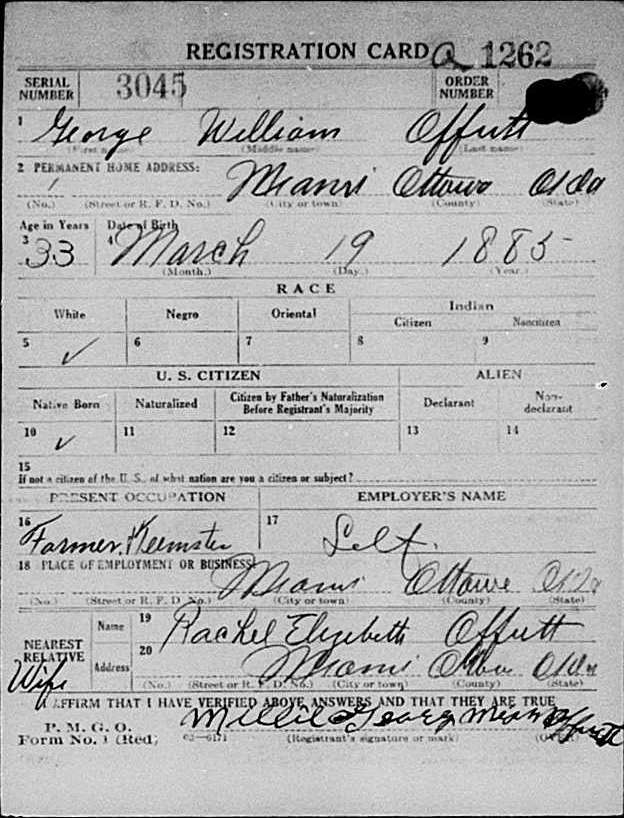 REGISTRATION CARD a 1262
SERIAL NUMBER 3045 ORDER NUMBER
1 George William Offutt
(First name) (Middle name) (Last name)
2 PERMANENT HOME ADDRESS:
Miami Ottawa Okla
(No.) (Street or R. F. D. No.) (City or town) (County) (State)
Age in Years Date of Birth
3 33 4 March 19 1885
(Month.) (Day.) (Year.)
RACE
White Negro Oriental Indian
Citizen Noncitizen
5 ✓ 6 7 8 9
U. S. CITIZEN ALIEN
Native Born Naturalized Citizen by Father's Naturalization Before Registrant's Majority Declarant Non-declarant
10 ✓ 11 12 13 14
15
If not a citizen of the U. S., of what nation are you a citizen or subject?
PRESENT OCCUPATION EMPLOYER'S NAME
16 Farmer. Teemster 17 Self.
18 PLACE OF EMPLOYMENT OR BUSINESS:
Miami Ottawa Okla
(No.) (Street or R. F. D. No.) (City or town) (County) (State)
NEAREST RELATIVE Name 19 Rachel Elizebeth Offutt
Wife Address 20 Miami Ottawa Okla
(No.) (Street or R. F. D. No.) (City or town) (County) (State)
I AFFIRM THAT I HAVE VERIFIED ABOVE ANSWERS AND THAT THEY ARE TRUE
P. M. G. O.
Form No. 1 (Red) 03-6171 (Registrant's signature or mark) (OVER)
George Offutt